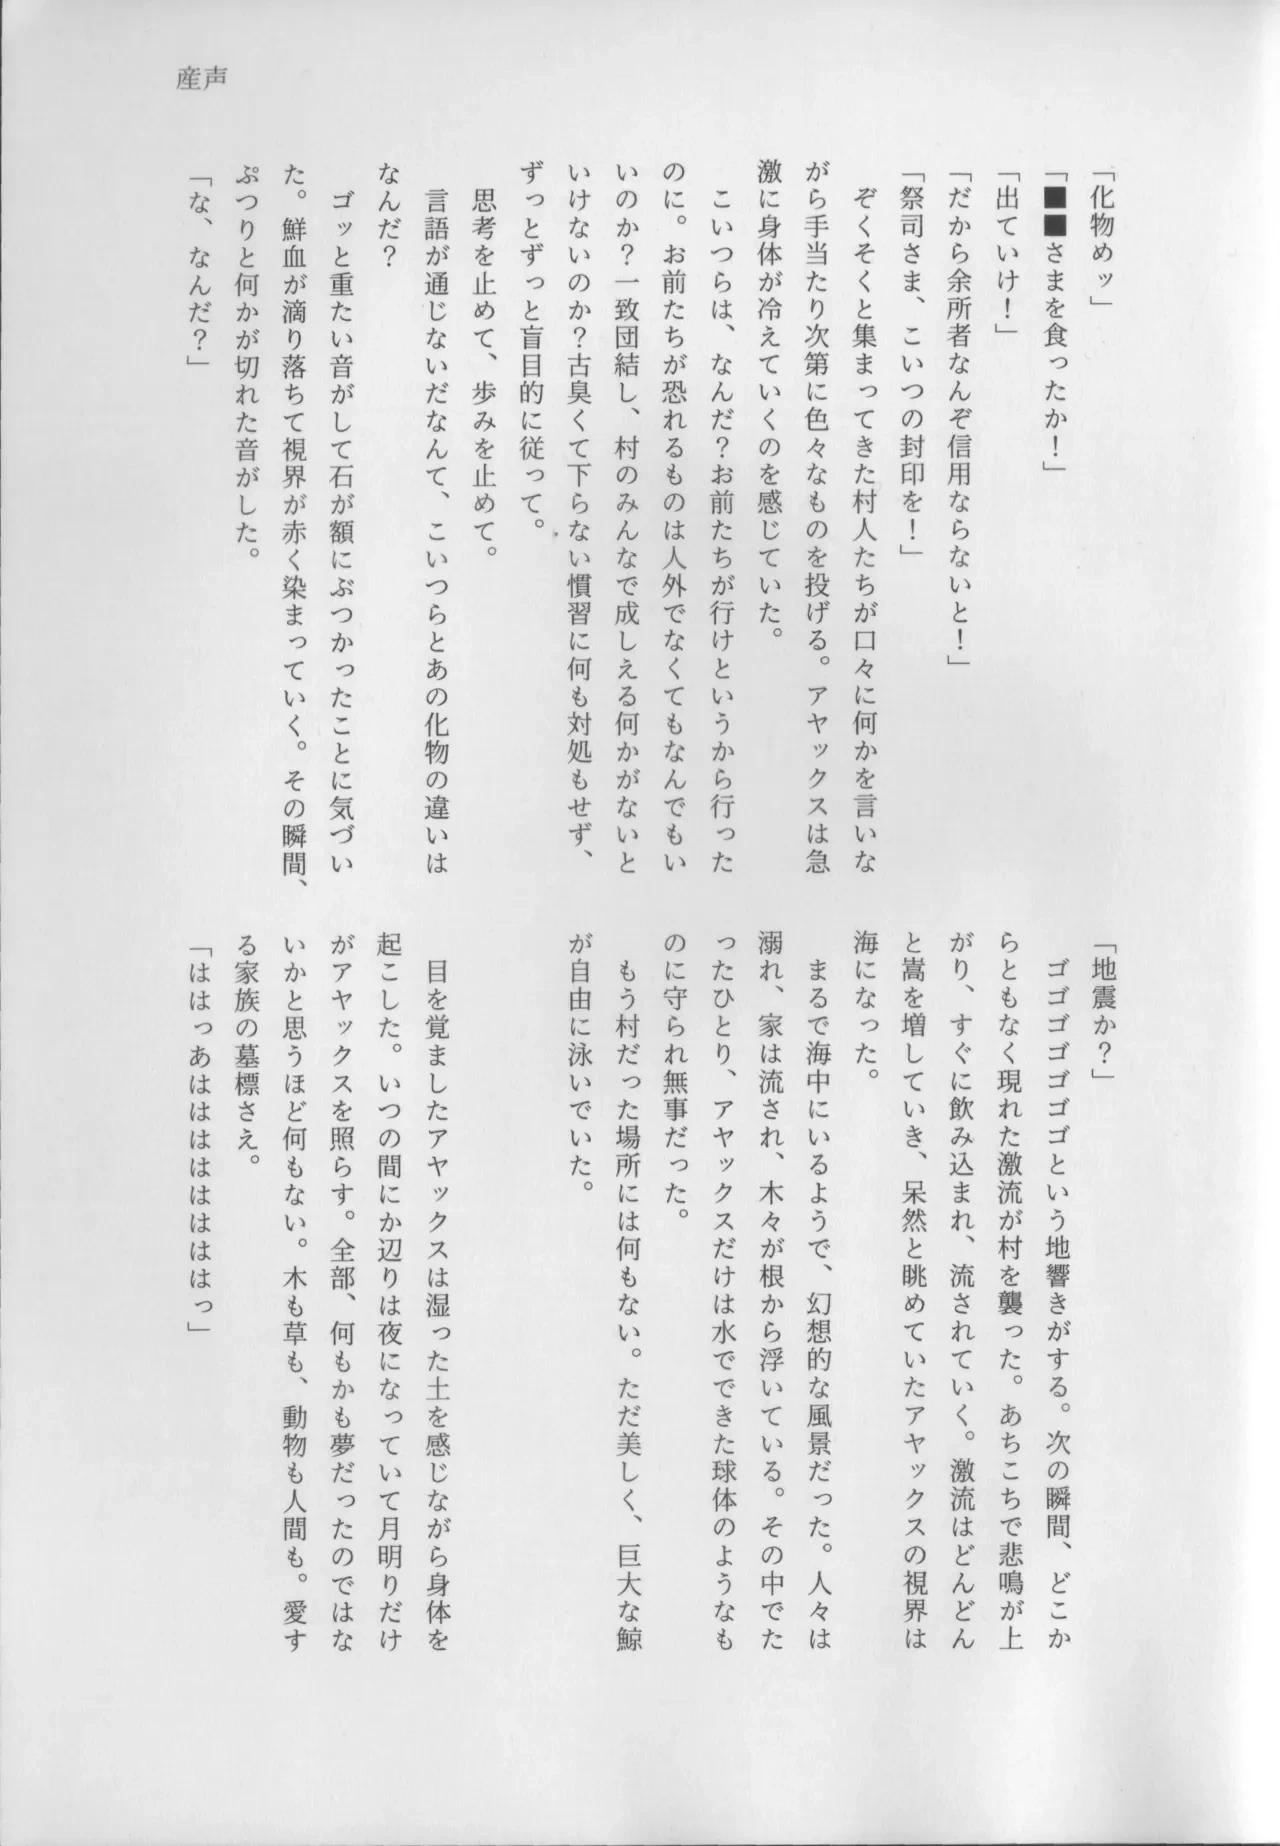 産声
「化物めッ」
「■■さまを食ったか！」
「出ていけ！」
「だから余所者なんぞ信用ならないと！」
「祭司さま、こいつの封印を！」
ぞくそくと集まってきた村人たちが口々に何かを言いな
がら手当たり次第に色々なものを投げる。アヤックスは急
激に身体が冷えていくのを感じていた。
こいつらは、なんだ？お前たちが行けというから行った
のに。お前たちが恐れるものは人外でなくてもなんでもい
いのか？一致団結し、村のみんなで成しえる何かがないと
いけないのか？古臭くて下らない慣習に何も対処もせず、
ずっとずっと盲目的に従って。
思考を止めて、歩みを止めて。
言語が通じないだなんて、こいつらとあの化物の違いは
なんだ？
ゴッと重たい音がして石が額にぶつかったことに気づい
た。鮮血が滴り落ちて視界が赤く染まっていく。その瞬間、
ぷつりと何かが切れた音がした。
「な、なんだ？」
「地震か？」
ゴゴゴゴゴゴゴという地響きがする。次の瞬間、どこか
らともなく現れた激流が村を襲った。あちこちで悲鳴が上
がり、すぐに飲み込まれ、流されていく。激流はどんどん
と嵩を増していき、呆然と眺めていたアヤックスの視界は
海になった。
まるで海中にいるようで、幻想的な風景だった。人々は
溺れ、家は流され、木々が根から浮いている。その中でた
ったひとり、アヤックスだけは水でできた球体のようなも
のに守られ無事だった。
もう村だった場所には何もない。ただ美しく、巨大な鯨
が自由に泳いでいた。
目を覚ましたアヤックスは湿った土を感じながら身体を
起こした。いつの間にか辺りは夜になっていて月明りだけ
がアヤックスを照らす。全部、何もかも夢だったのではな
いかと思うほど何もない。木も草も、動物も人間も。愛す
る家族の墓標さえ。
「ははっあはははははははっ」